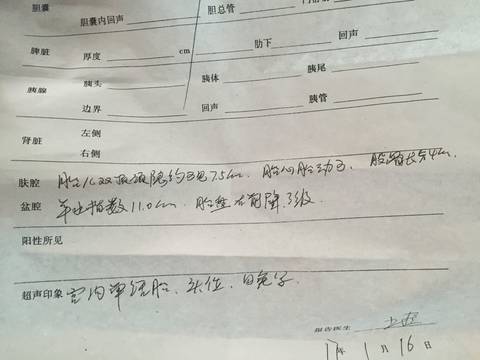 胆囊 胆总管
胆囊内回声
脾脏 厚度 cm 肋下 回声
胰腺 胰头 胰体 胰尾
边界 回声 胰管
肾脏 左侧
右侧
腹腔 胎儿双顶径约7.5cm 胎心胎动 股骨长5.4cm
盆腔 羊水指数11.0cm 胎盘右前 级
阳性所见
超声印象 宫内单活胎、头位
报告医生
17年 1月16日